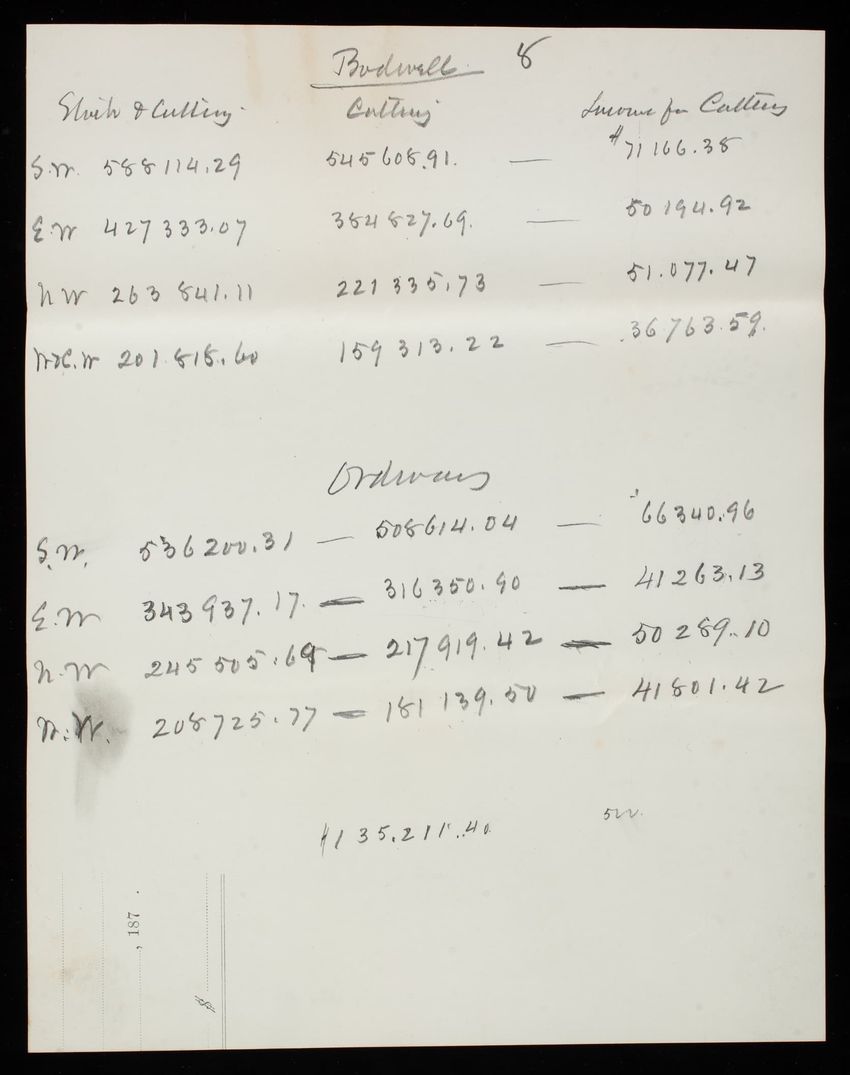 Bodwell 8
Stock & Cutting Cutting Income for Cutting
S.W. 588114.29 545608.91. — $71166.38
E.W 427333.07 384827.69. — 50194.92
N W 263841.11 221335.73 — 51.077.47
W 201.818.60 159313.22 — 36763.59.
Ordways
S.W. 536200.31 — 508614.04 — 66340.96
E.W 343937.17. — 316350.90 — 41263.13
N.W 245505.69 — 217919.42 — 50289.10
W.W. 208725.77 — 181139.50 — 41801.42
$135.211.40
, 187 .
$